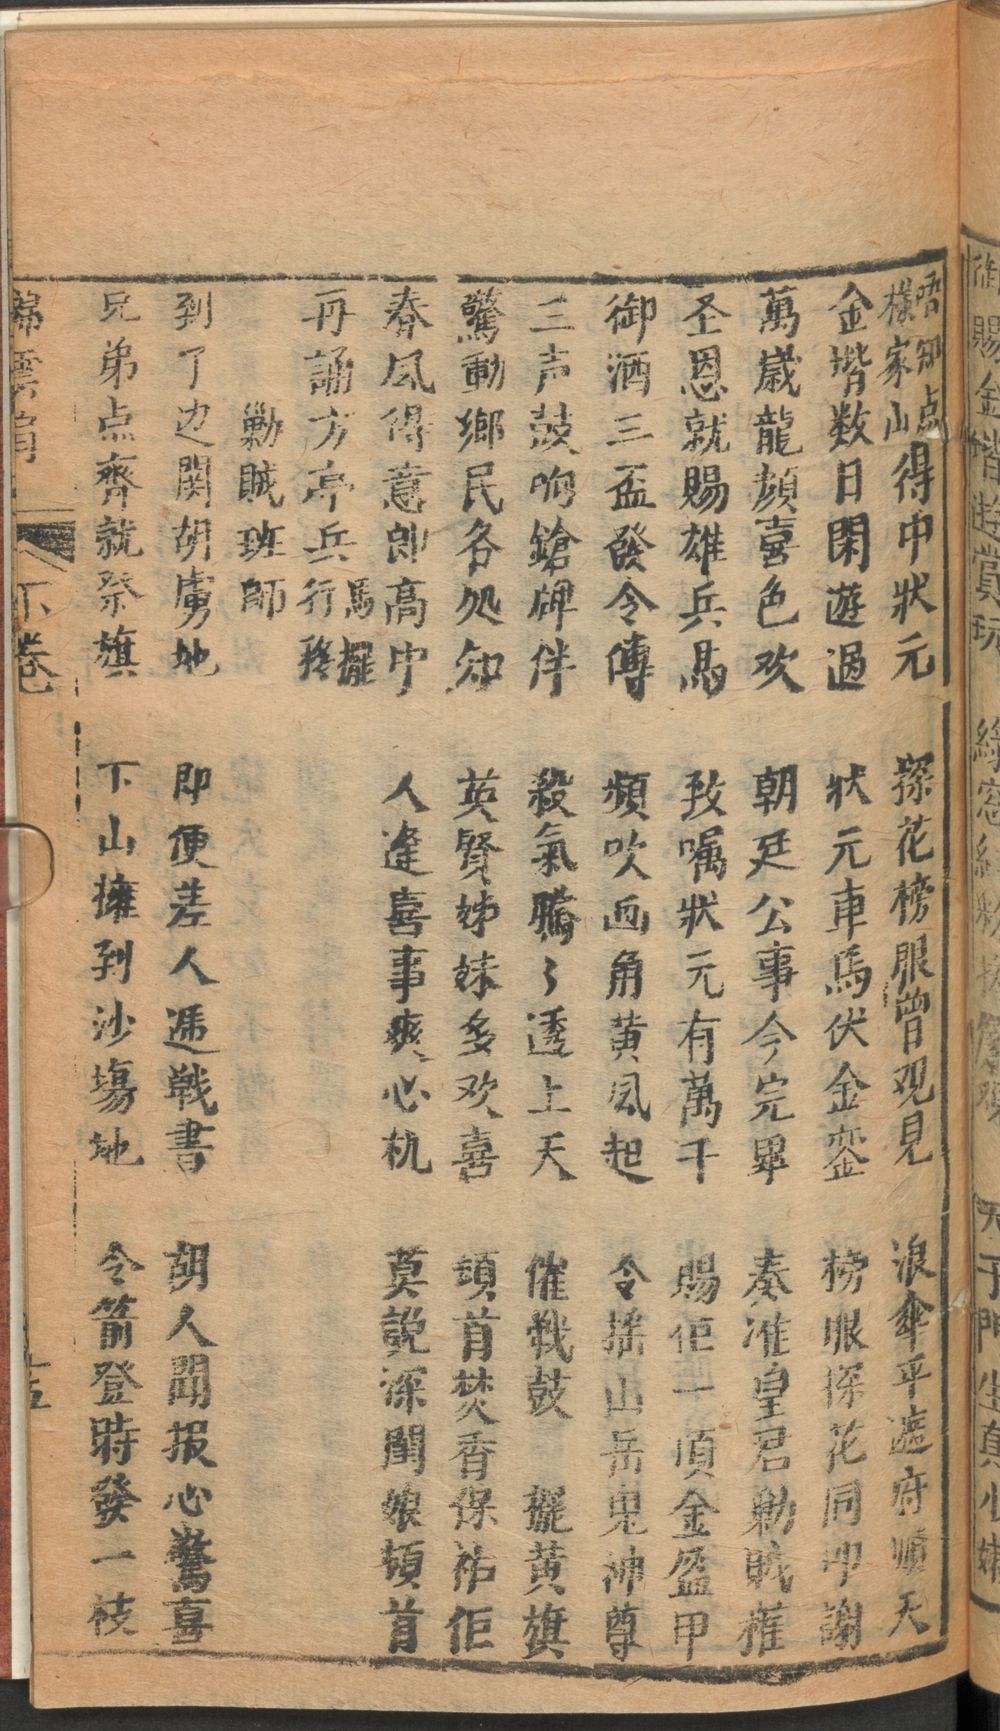 唔知点様家山得中狀元　探花榜眼曾观見　浪傘平遮府順天
金堦数日閑遊過　狀元車馬伏金銮　榜眼探花同叩謝
萬歲龍顔喜色欢　朝廷公事今完畢　奏准皇君勦賊權
圣恩就賜雄兵馬　致嘱狀元有萬千　賜佢一頂金盔甲
御酒三盃發令傳　頻吹画角黄風起　令搖山岳鬼神尊
三声鼓响鎗碑伴　殺氣騰〻透上天　催戰鼓　擺黄旗
驚動鄉民各处知　英賢姊妹多欢喜　頃首焚香保祐佢
春風得意郎高中　人逢喜事爽心机　莫說深閨娘頓首
再誦方亭兵馬擺行移
勦賊班師
到了边関胡虜地　即便差人逓戦書　胡人聞报心驚喜
兄弟点齊就祭旗　下山擁到沙塲地　令箭登時發一枝
錦雲
下卷
十五
御賜金堦遊賞玩　綠窓紅
天子門生真